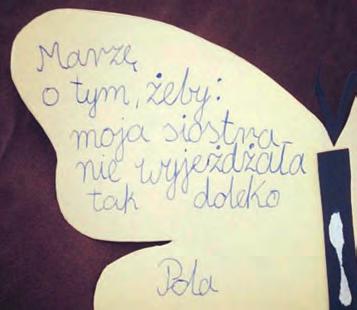 Marzę
o tym, żeby:
moja siostra
nie wyjeżdżała
tak doleko
Pola